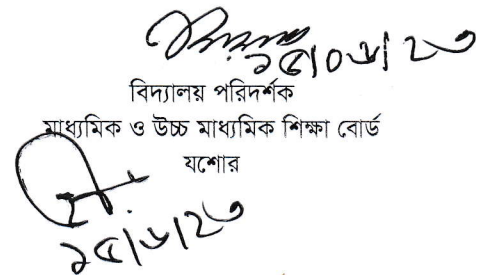 ১৫/০৬/২৩
বিদ্যালয় পরিদর্শক
মাধ্যমিক ও উচ্চ মাধ্যমিক শিক্ষা বোর্ড
যশোর
১৫/৬/২৩